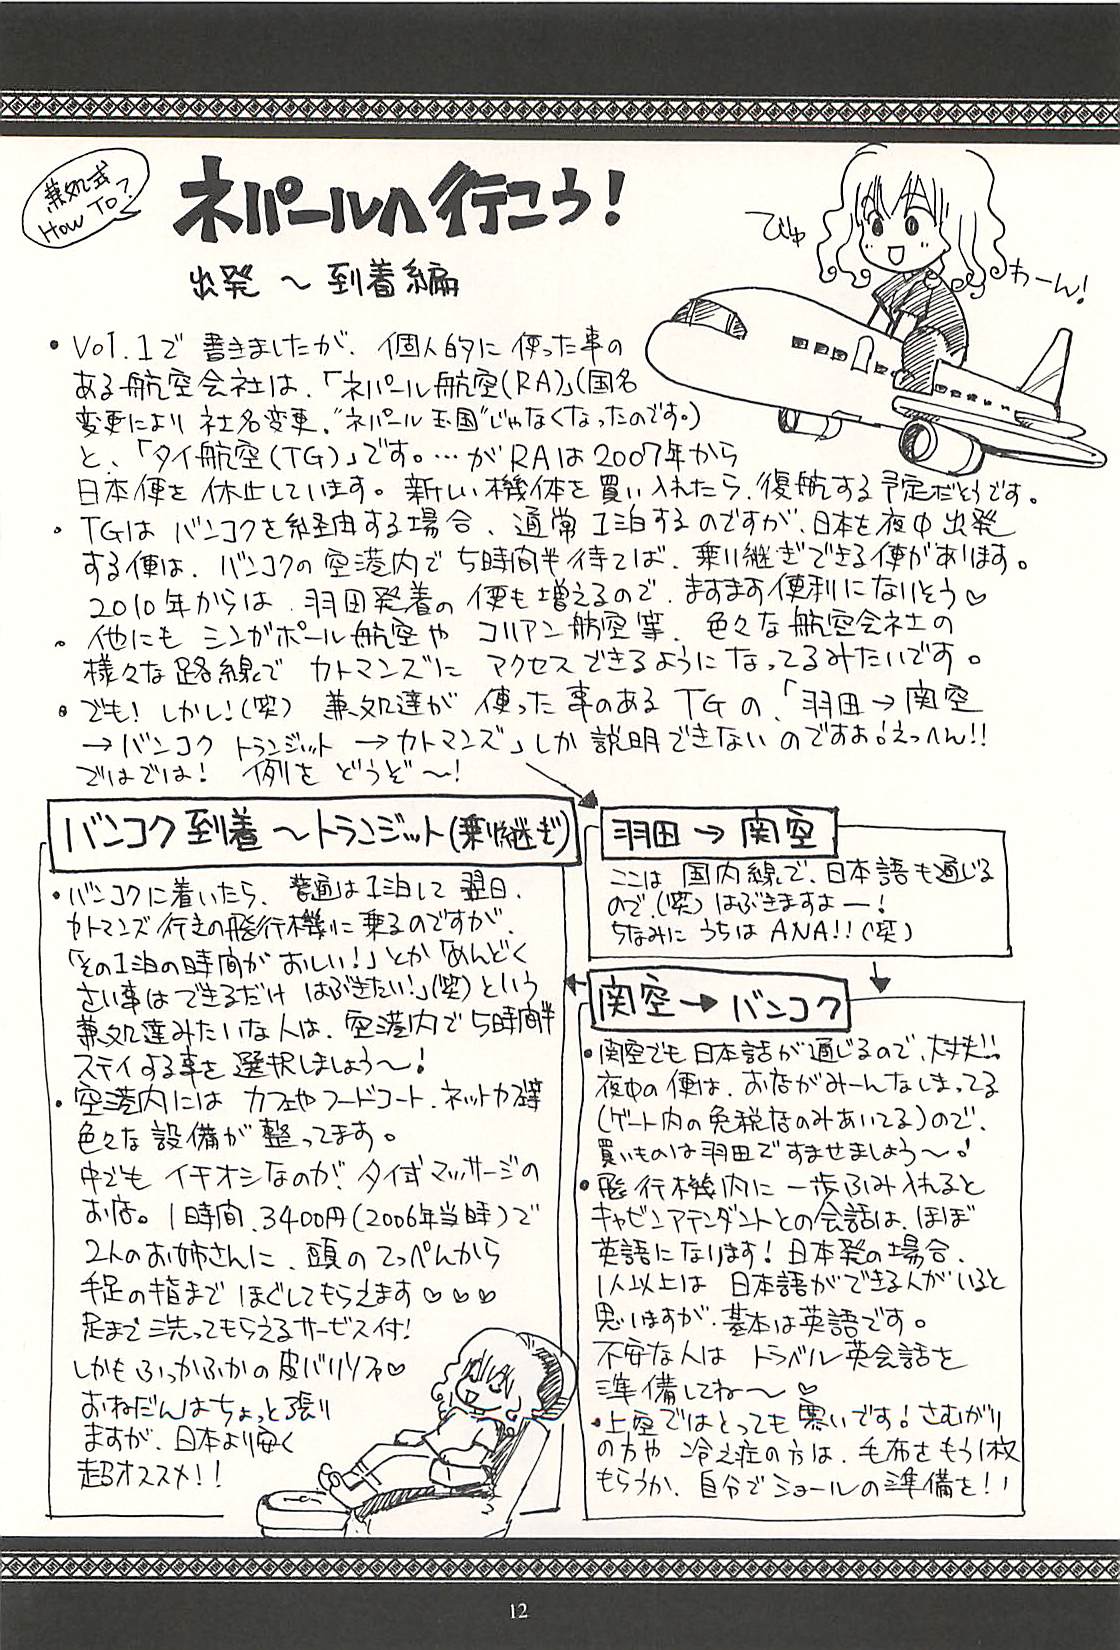 兼処式
HOW TO?
ネパールへ行こう!
出発〜到着編
びゅ
わーん!
・Vol.1で書きましたが、個人的に使った事の
ある航空会社は、「ネパール航空(RA)」(国名
変更により社名変更。"ネパール王国"じゃなくなったのです。)
と、「タイ航空(TG)」です。…がRAは2007年から
日本便を休止しています。新しい機体を買い入れたら、復航する予定だそうです。
・TGはバンコクを経由する場合、通常1泊するのですが、日本を夜中出発
する便は、バンコクの空港内で5時間半待てば、乗り継ぎできる便があります。
2010年からは、羽田発着の便も増えるので、ますます便利になりそう♡
・他にもシンガポール航空やコリアン航空等、色々な航空会社の
様々な路線でカトマンズにアクセスできるようになってるみたいです。
・でも!しかし!(笑)兼処達が使った事のあるTGの、「羽田→関空
→バンコクトランジット→カトマンズ」しか説明できないのですよ!えっへん!!
ではでは!例をどうぞ〜!
羽田→関空
ここは国内線で、日本語も通じる
ので、(笑)はぶきますよー!
ちなみにうちはANA!!(笑)
関空→バンコク
・関空でも日本語が通じるので、大丈夫!!
夜中の便は、お店がみーんなしまってる
(ゲート内の免税店のみあいてる)ので、
買いものは羽田ですませましょう〜!
・飛行機内に一歩ふみ入れると
キャビンアテンダントとの会話は、ほぼ
英語になります!日本発の場合、
1人以上は日本語ができる人がいると
思いますが、基本は英語です。
不安な人はトラベル英会話を
準備してね〜♡
・上空ではとっても寒いです!さむがり
の方や冷え症の方は、毛布をもう1枚
もらうか、自分でショールの準備を!!
バンコク到着〜トランジット(乗り継ぎ)
・バンコクに着いたら、普通は1泊して翌日、
カトマンズ行きの飛行機に乗るのですが、
「その1泊の時間がおしい!」とか「めんどく
さい事はできるだけはぶきたい!」(笑)という
兼処達みたいな人は、空港内で5時間半
ステイする事を選択しましょう〜!
・空港内にはカフェやフードコート、ネットカフェ等
色々な設備が整ってます。
中でもイチオシなのが、タイ式マッサージの
お店。1時間、3400円(2006年当時)で
2人のお姉さんに、頭のてっぺんから
手足の指までほぐしてもらえます♡♡♡
足まで洗ってもらえるサービス付!
しかもふっかふかの皮バリソファ♡
おねだんはちょっと張り
ますが、日本より安く
超オススメ!!
12